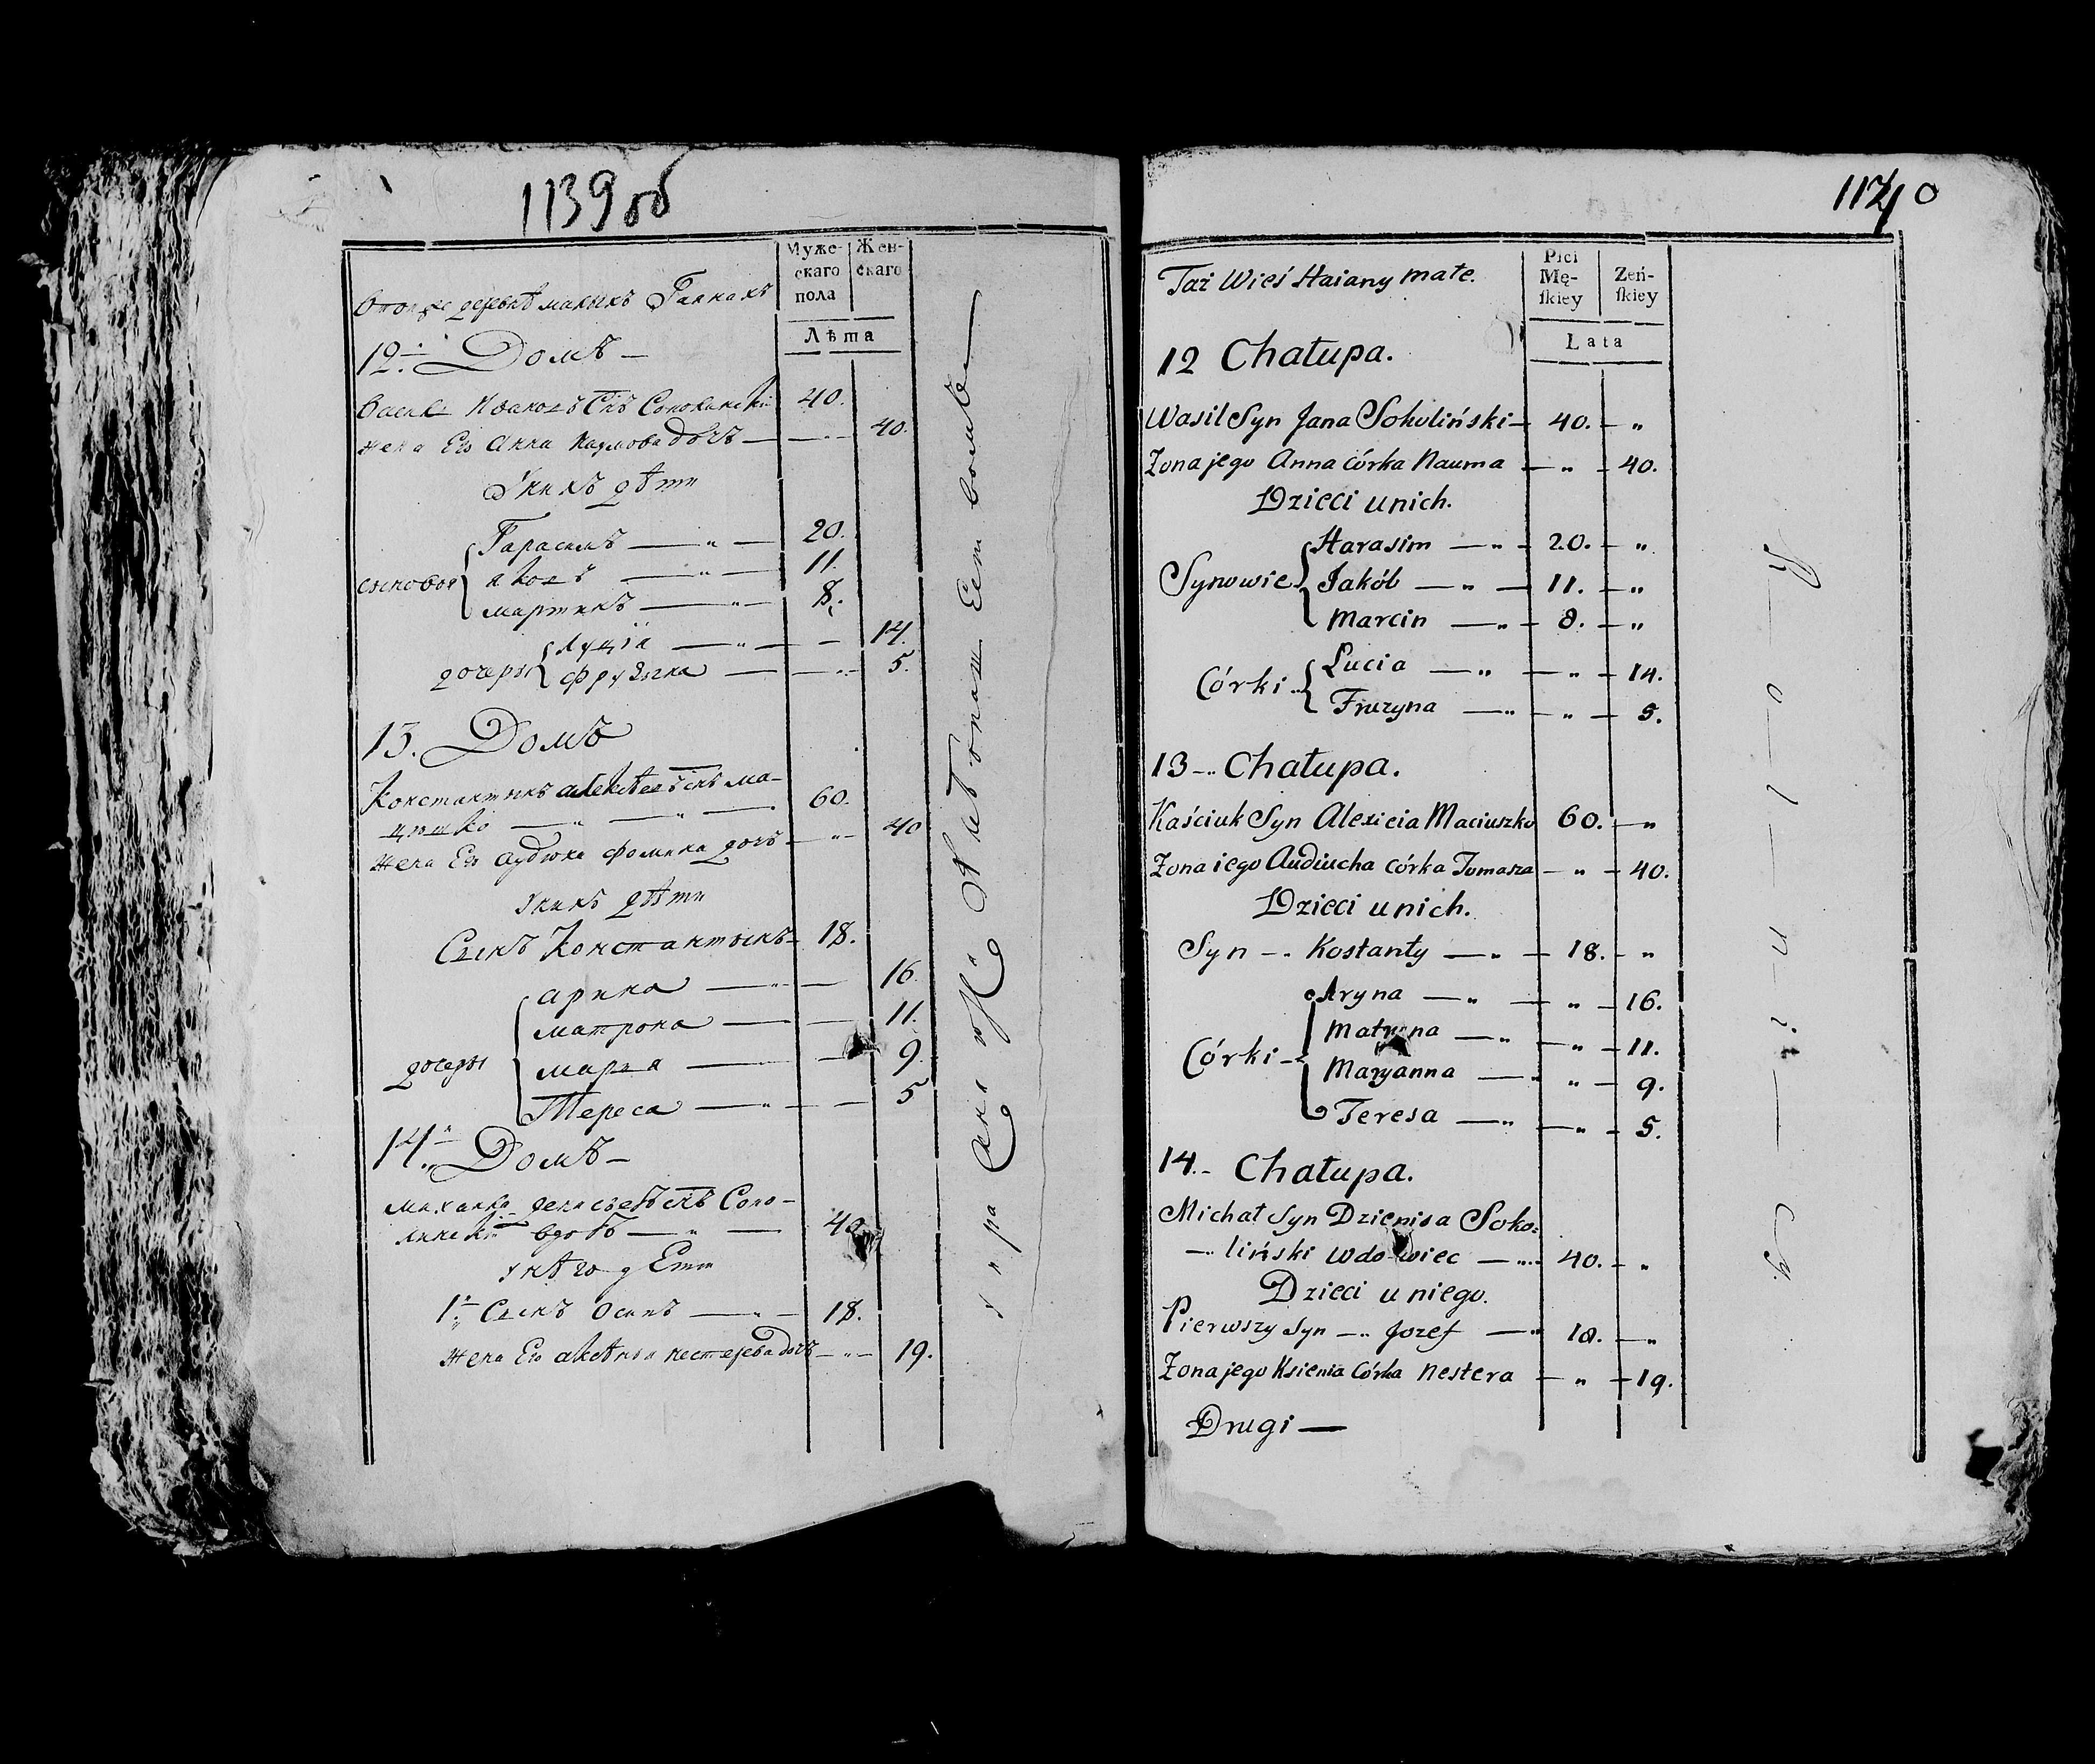 1139об
Муже-
скаго
пола
Жен-
скаго
Лѣта
12. Домъ —
40.
Жена Его Анна Наумова дочь — 40.
У нихъ дѣти
Сыновья
Гарасимъ — 20.
Яковъ — 11.
Мартинъ — 8.
дочеры
Луція — 14.
Фрузына — 5.
13. Домъ
Константынъ Алексѣевъ Снъ Ма-
цюшко — 60.
Жена Его Аудюха Фомина дочь — 40
У нихъ дѣти
Сынъ Константынъ — 18.
дочеры
Арина — 16.
Матрона — 11.
Марья — 9.
Тереса — 5
14. Домъ —
Михайло Денисьевъ Снъ Соко-
линскій вдовъ — 40
У него дети
1. Сынъ Осипъ — 18.
Жена Его Аксѣнья Нестерова дочь — 19.
1140
Płci
Mę-
skiey
Żeń-
skiey
Lata
Taż Wieś Haiany małe.
12 Chałupa.
Wasil Syn Jana Sokoliński — 40. — „
Żona jego Anna córka Nauma — „ — 40.
Dzieci u nich.
Synowie
Harasim — „ — 20. — „
Jakób — „ — 11. — „
Marcin — „ — 8. — „
Córki
Lucia — „ — „ — 14.
Fruzyna — „ — „ — 5.
13 — Chałupa.
Kaściuk Syn Alexieia Maciuszko 60. — „
Żona iego Audiucha córka Tomasza — „ — 40.
Dzieci u nich.
Syn — Kostanty — „ — 18. — „
Córki —
Aryna — „ — „ — 16.
Matrona — „ — „ — 11.
Maryanna — „ — 9.
Teresa — „ — „ — 5.
14. — Chałupa.
Michał Syn Dzienisa Soko=
— liński wdowiec — 40. — „
Dzieci u niego.
Pierwszy Syn — Jozef — 18. — „
Żona jego Ksienia Córka Nestera — „ — 19.
Drugi —
R — o — l — n — i — cy.